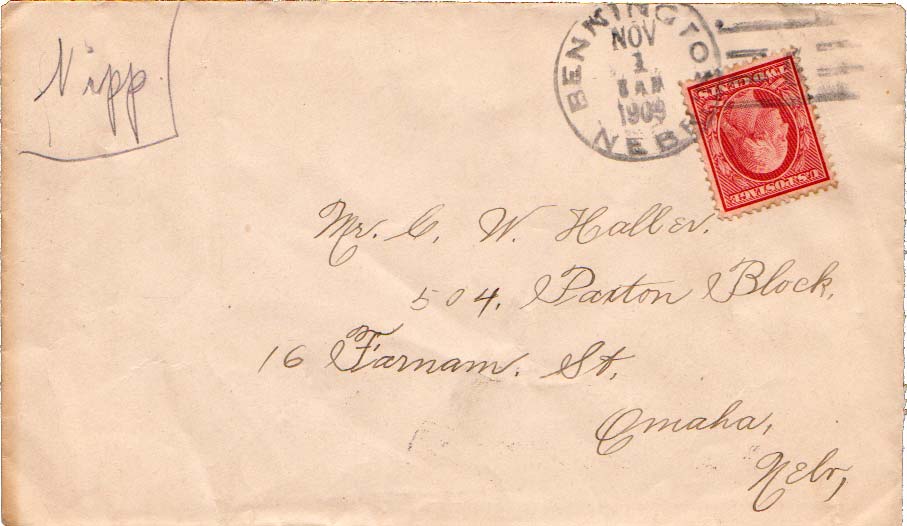 Nipp.
BENNINGTON
NOV
1
8 AM
1909
NEBR
U.S. POSTAGE
TWO CENTS
Mr. C. W. Haller.
504, Paxton Block,
16 Farnam. St,
Omaha,
Nebr,